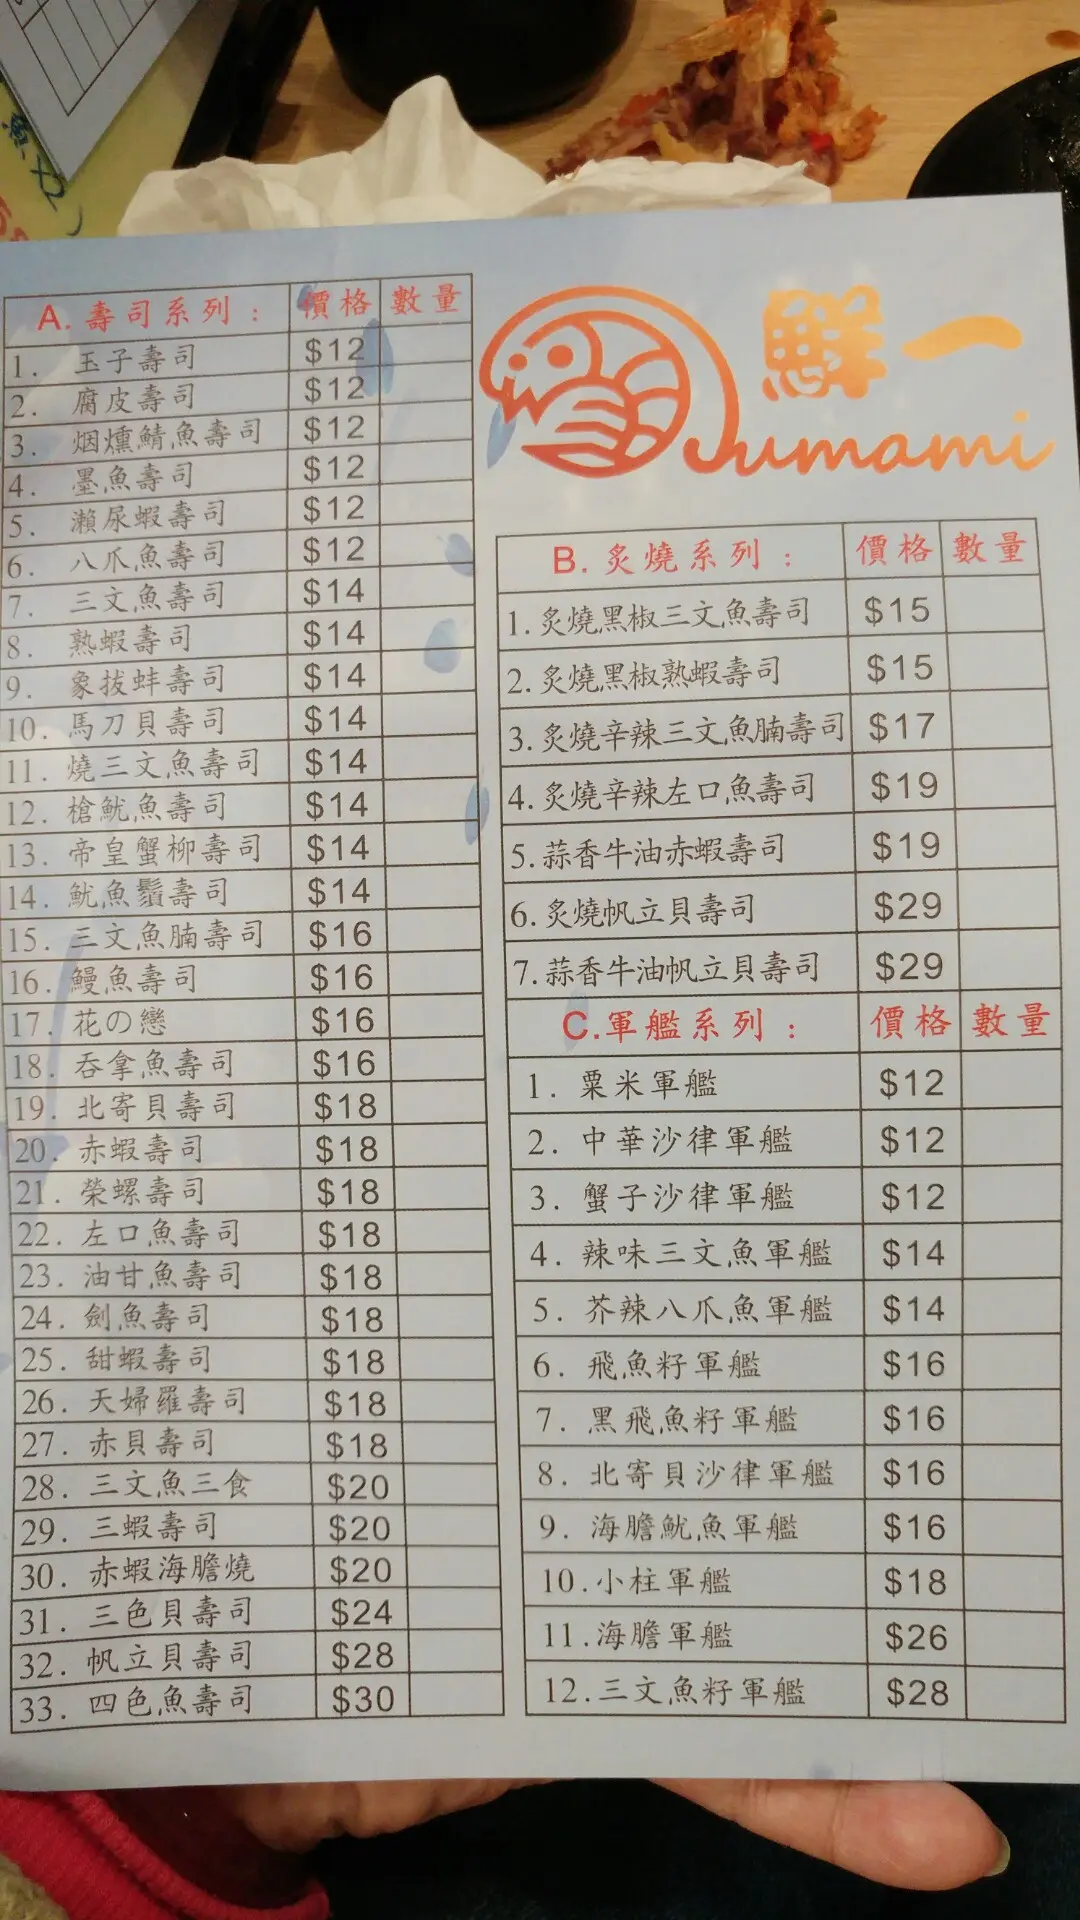 A. 壽司系列： 價格 數量
1. 玉子壽司 $12
2. 腐皮壽司 $12
3. 烟燻鯖魚壽司 $12
4. 墨魚壽司 $12
5. 瀨尿蝦壽司 $12
6. 八爪魚壽司 $12
7. 三文魚壽司 $14
8. 熟蝦壽司 $14
9. 象拔蚌壽司 $14
10. 馬刀貝壽司 $14
11. 燒三文魚壽司 $14
12. 槍魷魚壽司 $14
13. 帝皇蟹柳壽司 $14
14. 魷魚鬚壽司 $14
15. 三文魚腩壽司 $16
16. 鰻魚壽司 $16
17. 花の戀 $16
18. 吞拿魚壽司 $16
19. 北寄貝壽司 $18
20. 赤蝦壽司 $18
21. 榮螺壽司 $18
22. 左口魚壽司 $18
23. 油甘魚壽司 $18
24. 劍魚壽司 $18
25. 甜蝦壽司 $18
26. 天婦羅壽司 $18
27. 赤貝壽司 $18
28. 三文魚三食 $20
29. 三蝦壽司 $20
30. 赤蝦海膽燒 $20
31. 三色貝壽司 $24
32. 帆立貝壽司 $28
33. 四色魚壽司 $30
鮮一
Jumami
B. 炙燒系列： 價格 數量
1. 炙燒黑椒三文魚壽司 $15
2. 炙燒黑椒熟蝦壽司 $15
3. 炙燒辛辣三文魚腩壽司 $17
4. 炙燒辛辣左口魚壽司 $19
5. 蒜香牛油赤蝦壽司 $19
6. 炙燒帆立貝壽司 $29
7. 蒜香牛油帆立貝壽司 $29
C. 軍艦系列： 價格 數量
1. 粟米軍艦 $12
2. 中華沙律軍艦 $12
3. 蟹子沙律軍艦 $12
4. 辣味三文魚軍艦 $14
5. 芥辣八爪魚軍艦 $14
6. 飛魚籽軍艦 $16
7. 黑飛魚籽軍艦 $16
8. 北寄貝沙律軍艦 $16
9. 海膽魷魚軍艦 $16
10. 小柱軍艦 $18
11. 海膽軍艦 $26
12. 三文魚籽軍艦 $28